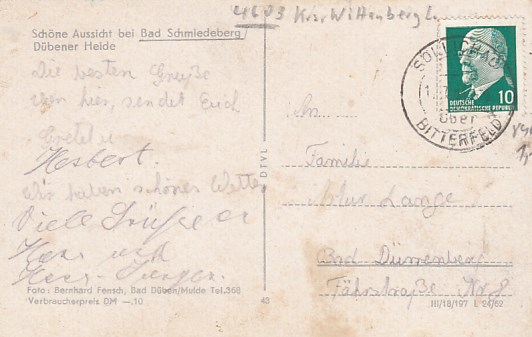 4603 Krs. Wittenberg L.
Schöne Aussicht bei Bad Schmiedeberg/
Dübener Heide
Die besten Grüße
von hier, sendet Euch
Gretel u
Herbert.
Wir haben schönes Wetter
Viele Grüße
und
DTVL
43
10
DEUTSCHE
DEMOKRATISCHE REPUBLIK
über
BITTERFELD
An
Familie
Lange
Bad Dürrenberg
Fährstraße Nr. 8
Foto: Bernhard Fensch, Bad Düben/Mulde Tel.368
Verbraucherpreis DM —.10
III/18/197 L 24/62